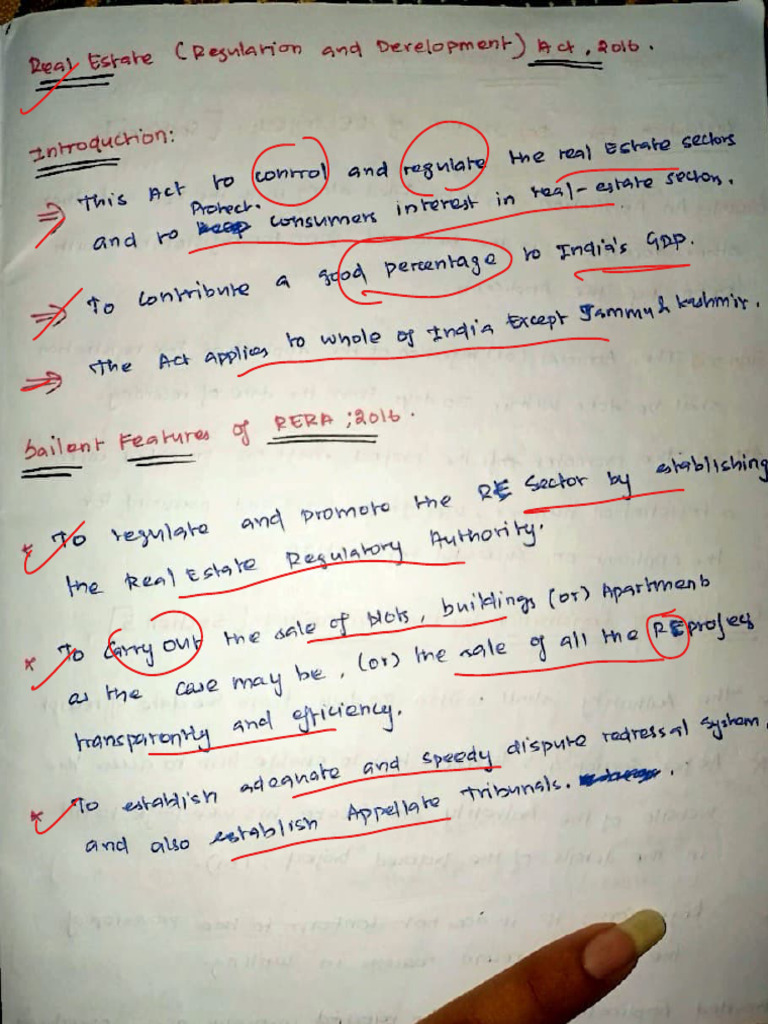 Real Estate (Regulation and Development) Act, 2016.
Introduction:
⇒ This Act to control and regulate the real Estate sectors
and to Protect. consumers interest in real-estate sectors.
⇒ To contribute a good percentage to India's GDP.
⇒ The Act applies to whole of India Except Jammu & Kashmir.
Sailent Features of RERA ; 2016.
* To regulate and promote the RE Sector by establishing
the Real Estate Regulatory Authority.
* To carry out the sale of plots, buildings (or) Apartment
as the case may be, (or) the sale of all the RE project
transparently and efficiency.
* To establish adequate and speedy dispute redressal system,
and also establish Appellate Tribunals.